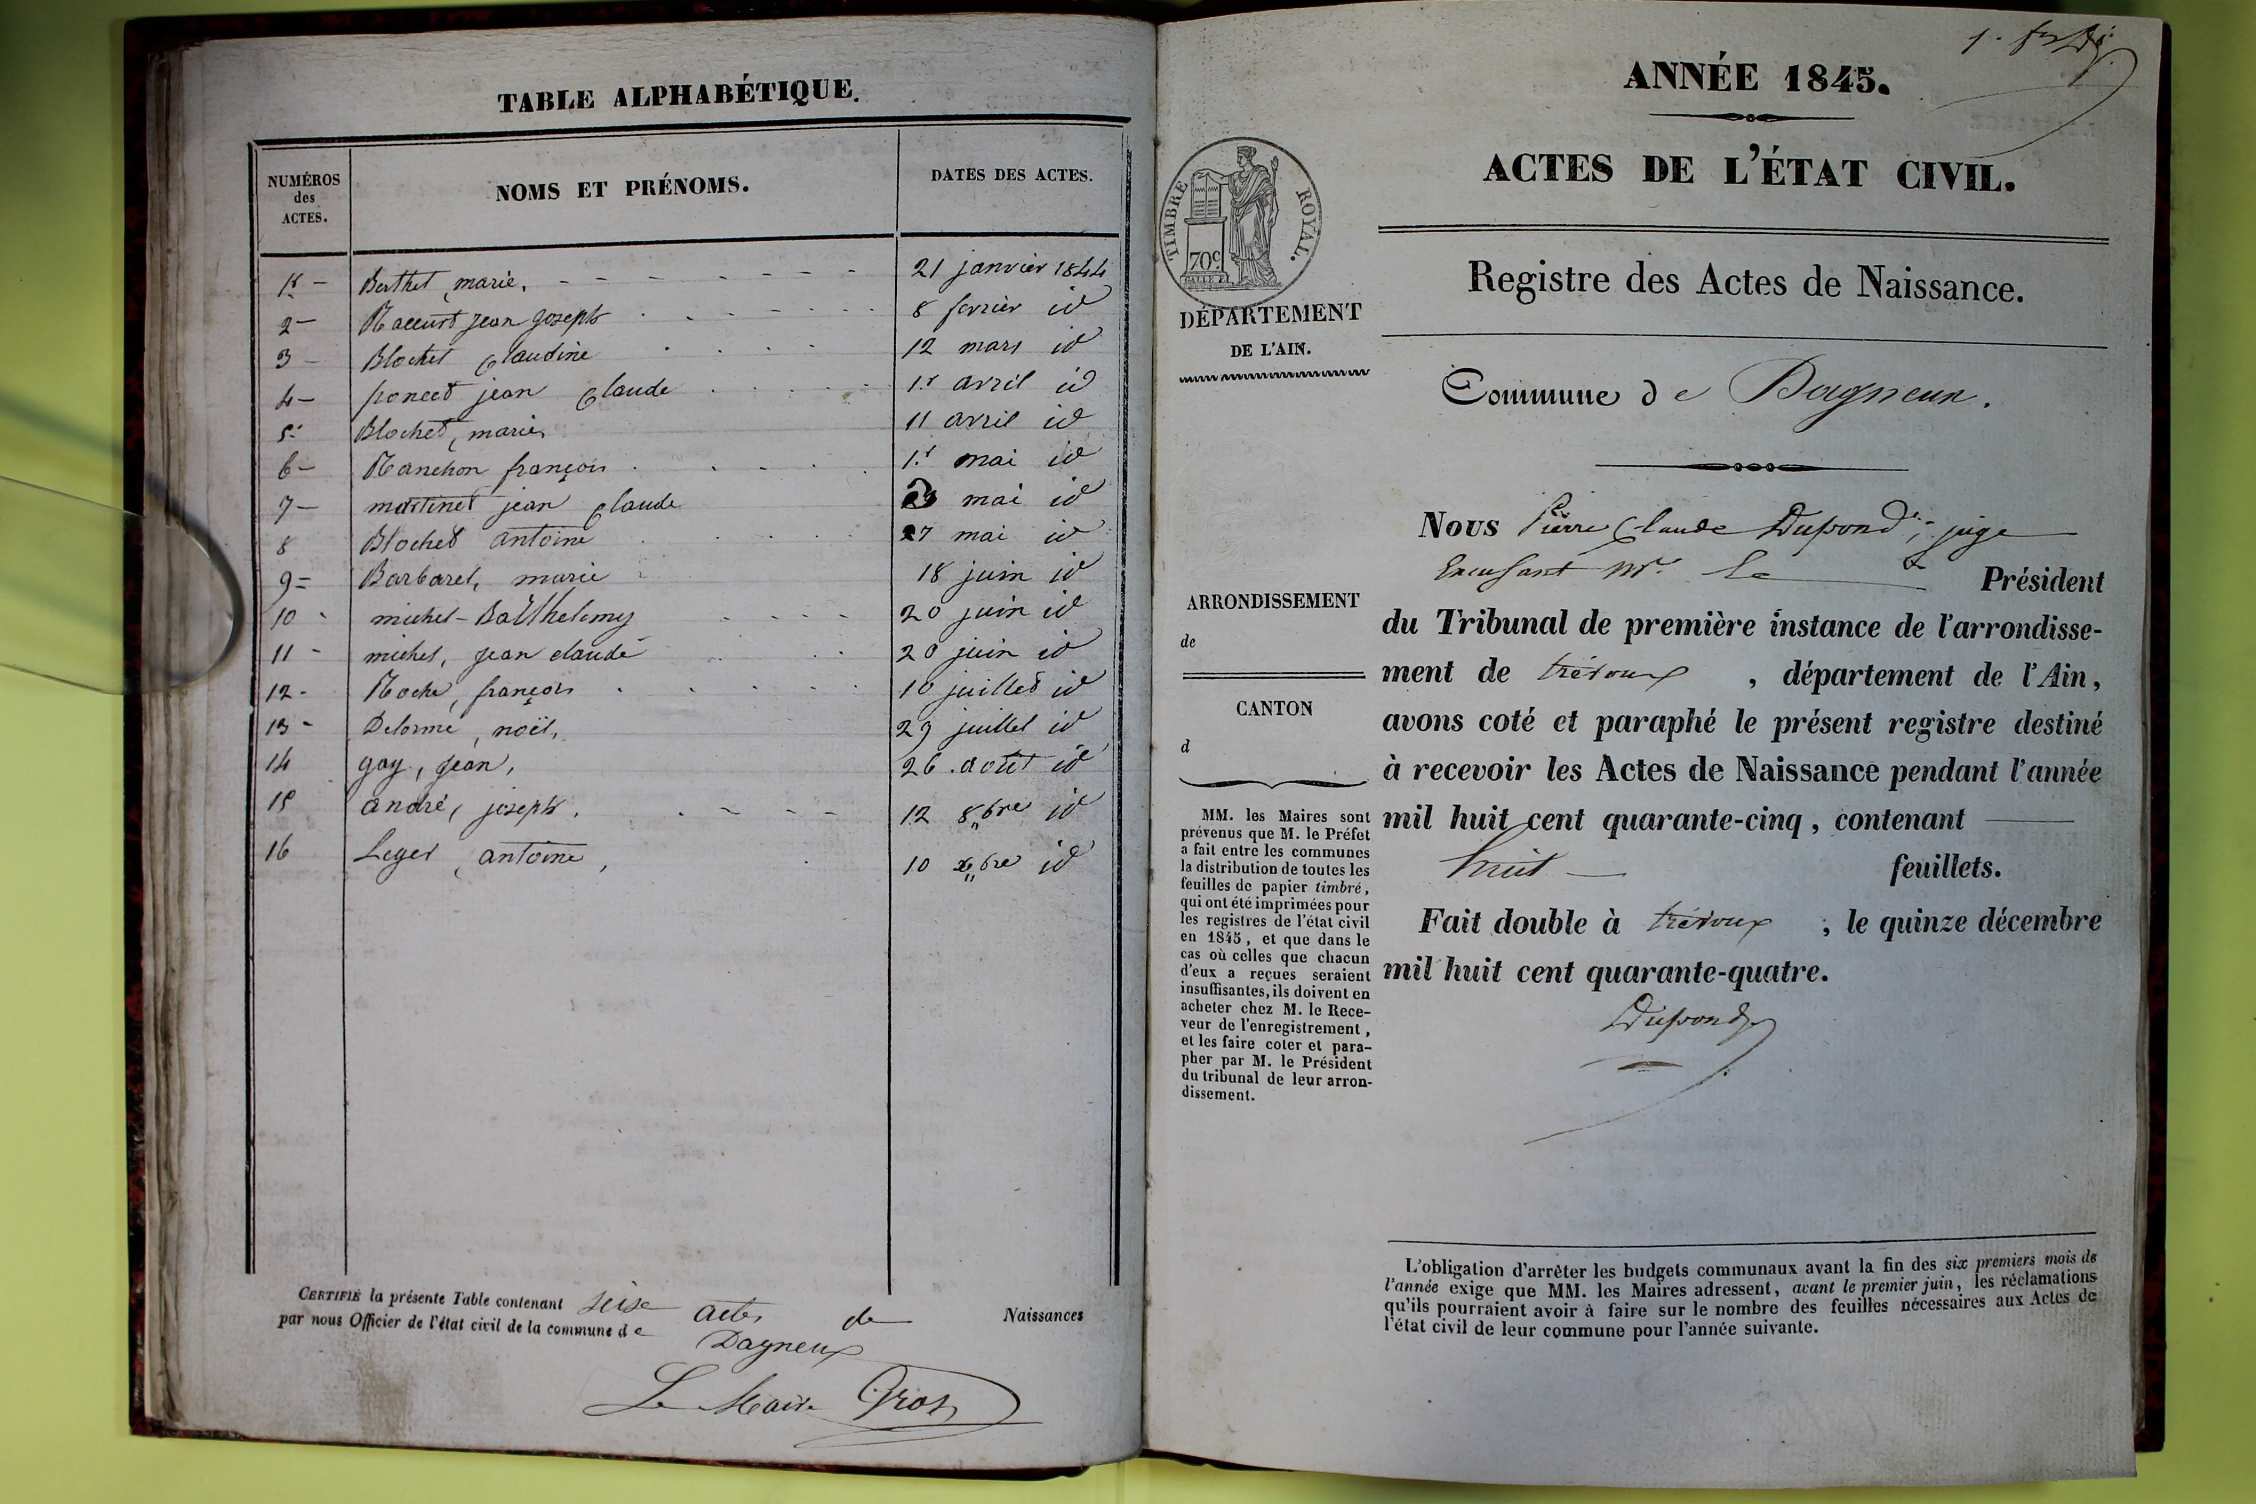 TABLE ALPHABÉTIQUE.
NUMÉROS des ACTES.
NOMS ET PRÉNOMS.
DATES DES ACTES.
1r - Berthet, marie. 21 janvier 1844
2 - Raccurt jean joseph 8 fevrier id
3 - Blochet Claudine 12 mars id
4 - poncet jean Claude 1.r avril id
5 - Blochet, marie 11 avril id
6 - Ranchon françois 1.r mai id
7 - martinet jean Claude mai id
8 Blochet antoine 27 mai id
9 = Barbaret, marie 18 juin id
10 - michel - Barthelemy 20 juin id
11 - michel, jean claude 20 juin id
12 - Roche, françois 10 juillet id
13 - Delorme, noël, 29 juillet id
14 gay, jean, 26 . août id
15 andré, joseph. 12 8bre id
16 Leger, antoine, 10 xbre id
CERTIFIÉ la présente Table contenant seise actes de Naissances
par nous Officier de l'état civil de la commune de Dagneux
Le Maire Gros
ANNÉE 1845.
ACTES DE L'ÉTAT CIVIL.
TIMBRE ROYAL.
70c
Registre des Actes de Naissance.
DÉPARTEMENT
DE L'AIN.
Commune de Dagneux.
Nous Pierre Claude Dupond, juge
Excusant Mr. Le Président
ARRONDISSEMENT
de
du Tribunal de première instance de l'arrondisse-
ment de trévoux, département de l'Ain,
CANTON
d
avons coté et paraphé le présent registre destiné
à recevoir les Actes de Naissance pendant l'année
mil huit cent quarante-cinq, contenant
huit feuillets.
Fait double à trévoux, le quinze décembre
mil huit cent quarante-quatre.
Dupond
MM. les Maires sont
prévenus que M. le Préfet
a fait entre les communes
la distribution de toutes les
feuilles de papier timbré,
qui ont été imprimées pour
les registres de l'état civil
en 1845, et que dans le
cas où celles que chacun
d'eux a reçues seraient
insuffisantes, ils doivent en
acheter chez M. le Rece-
veur de l'enregistrement,
et les faire coter et para-
pher par M. le Président
du tribunal de leur arron-
dissement.
L'obligation d'arrêter les budgets communaux avant la fin des six premiers mois de
l'année exige que MM. les Maires adressent, avant le premier juin, les réclamations
qu'ils pourraient avoir à faire sur le nombre des feuilles nécessaires aux Actes de
l'état civil de leur commune pour l'année suivante.